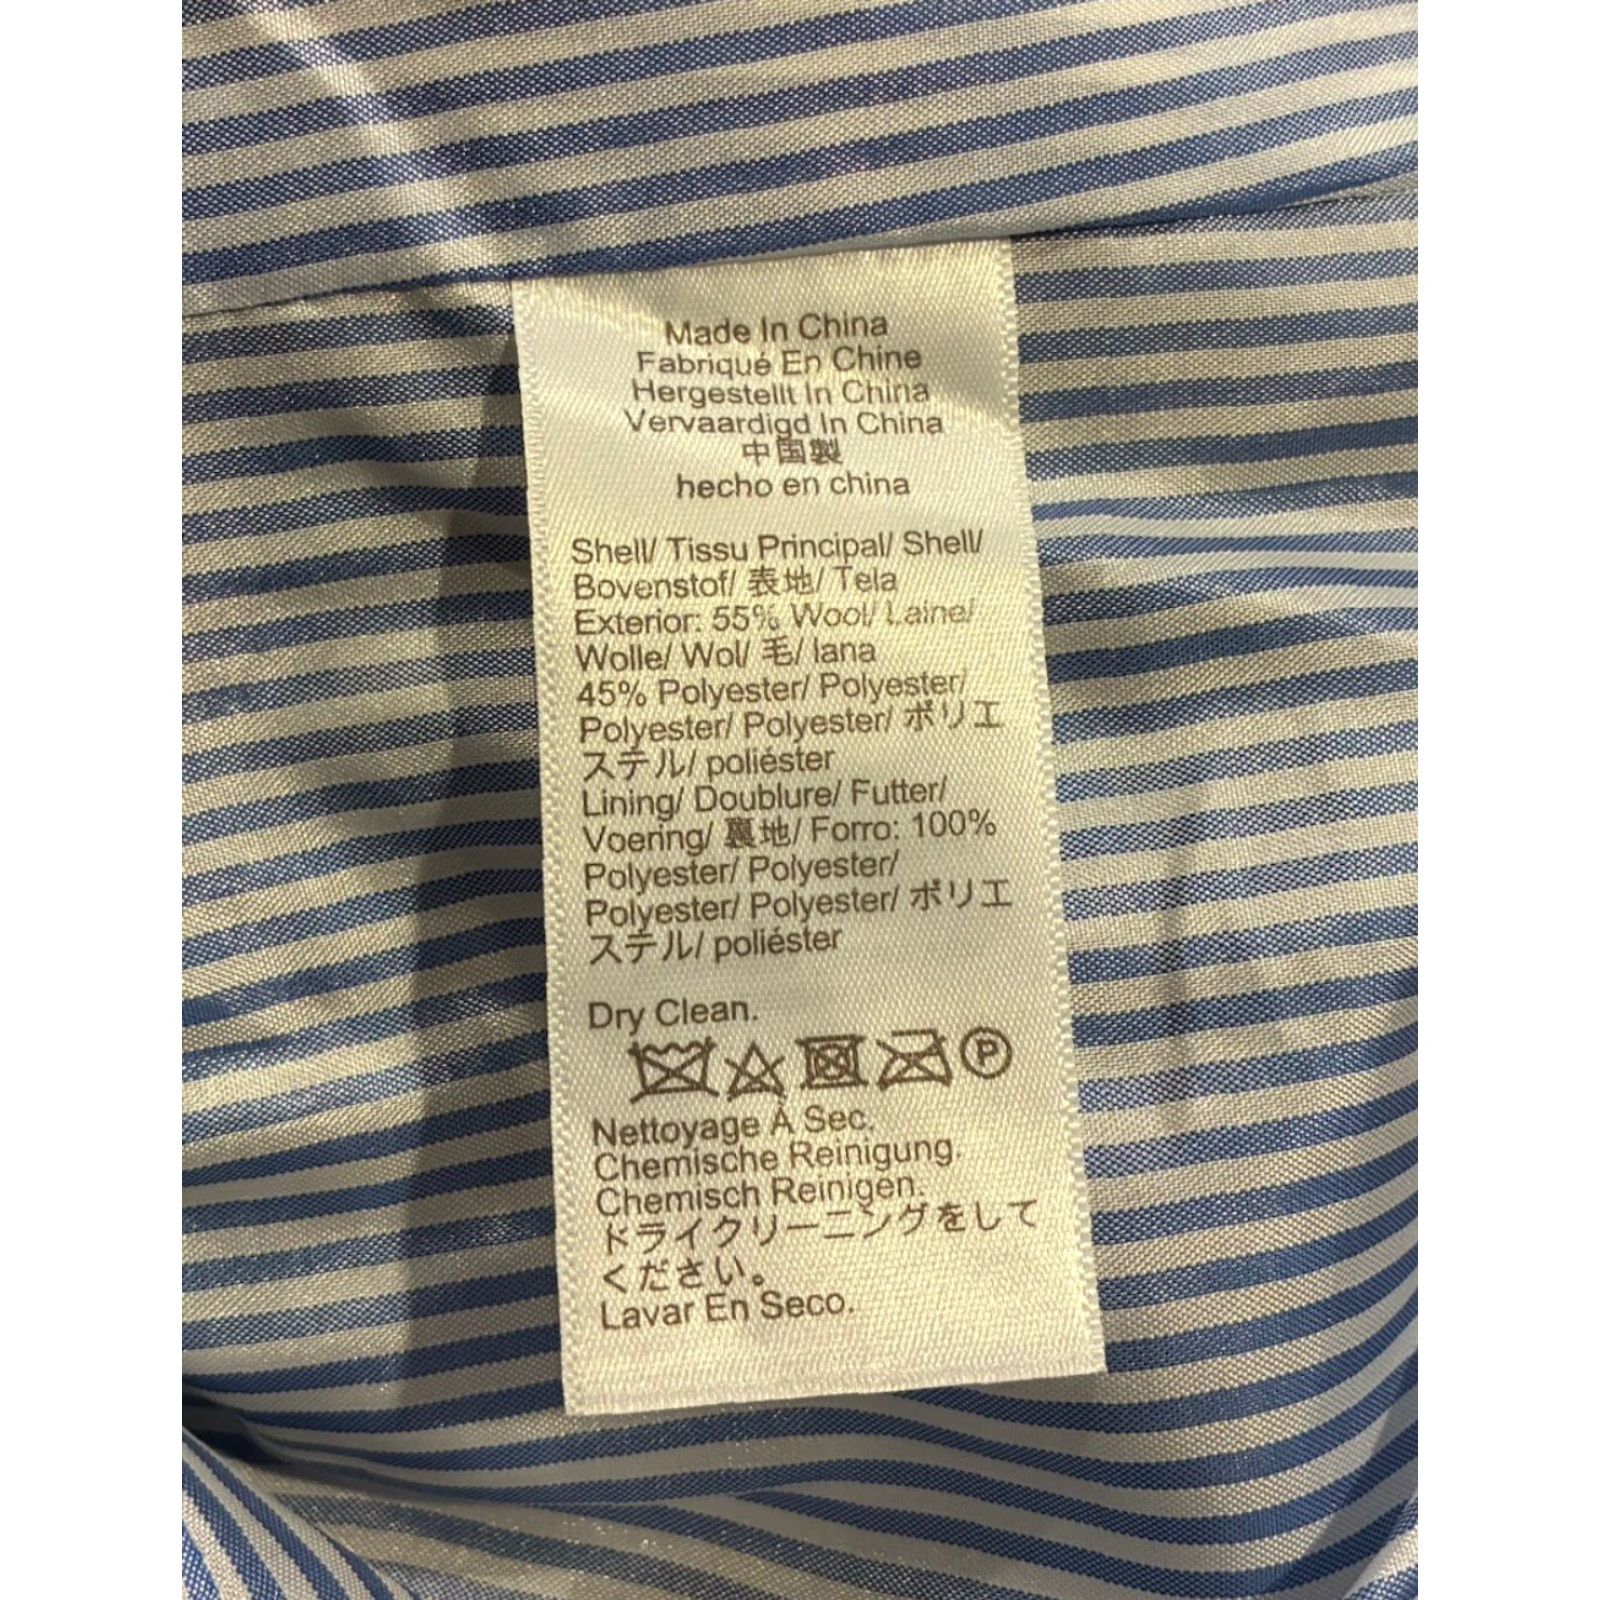 Made In China
Fabriqué En Chine
Hergestellt In China
Vervaardigd In China
中国製
hecho en china
Shell/ Tissu Principal/ Shell/
Bovenstof/ 表地/ Tela
Exterior: 55% Wool/ Laine/
Wolle/ Wol/ 毛/ lana
45% Polyester/ Polyester/
Polyester/ Polyester/ ポリエ
ステル/ poliéster
Lining/ Doublure/ Futter/
Voering/ 裏地/ Forro: 100%
Polyester/ Polyester/
Polyester/ Polyester/ ポリエ
ステル/ poliéster
Dry Clean.
P
Nettoyage À Sec.
Chemische Reinigung.
Chemisch Reinigen.
ドライクリーニングをして
ください。
Lavar En Seco.